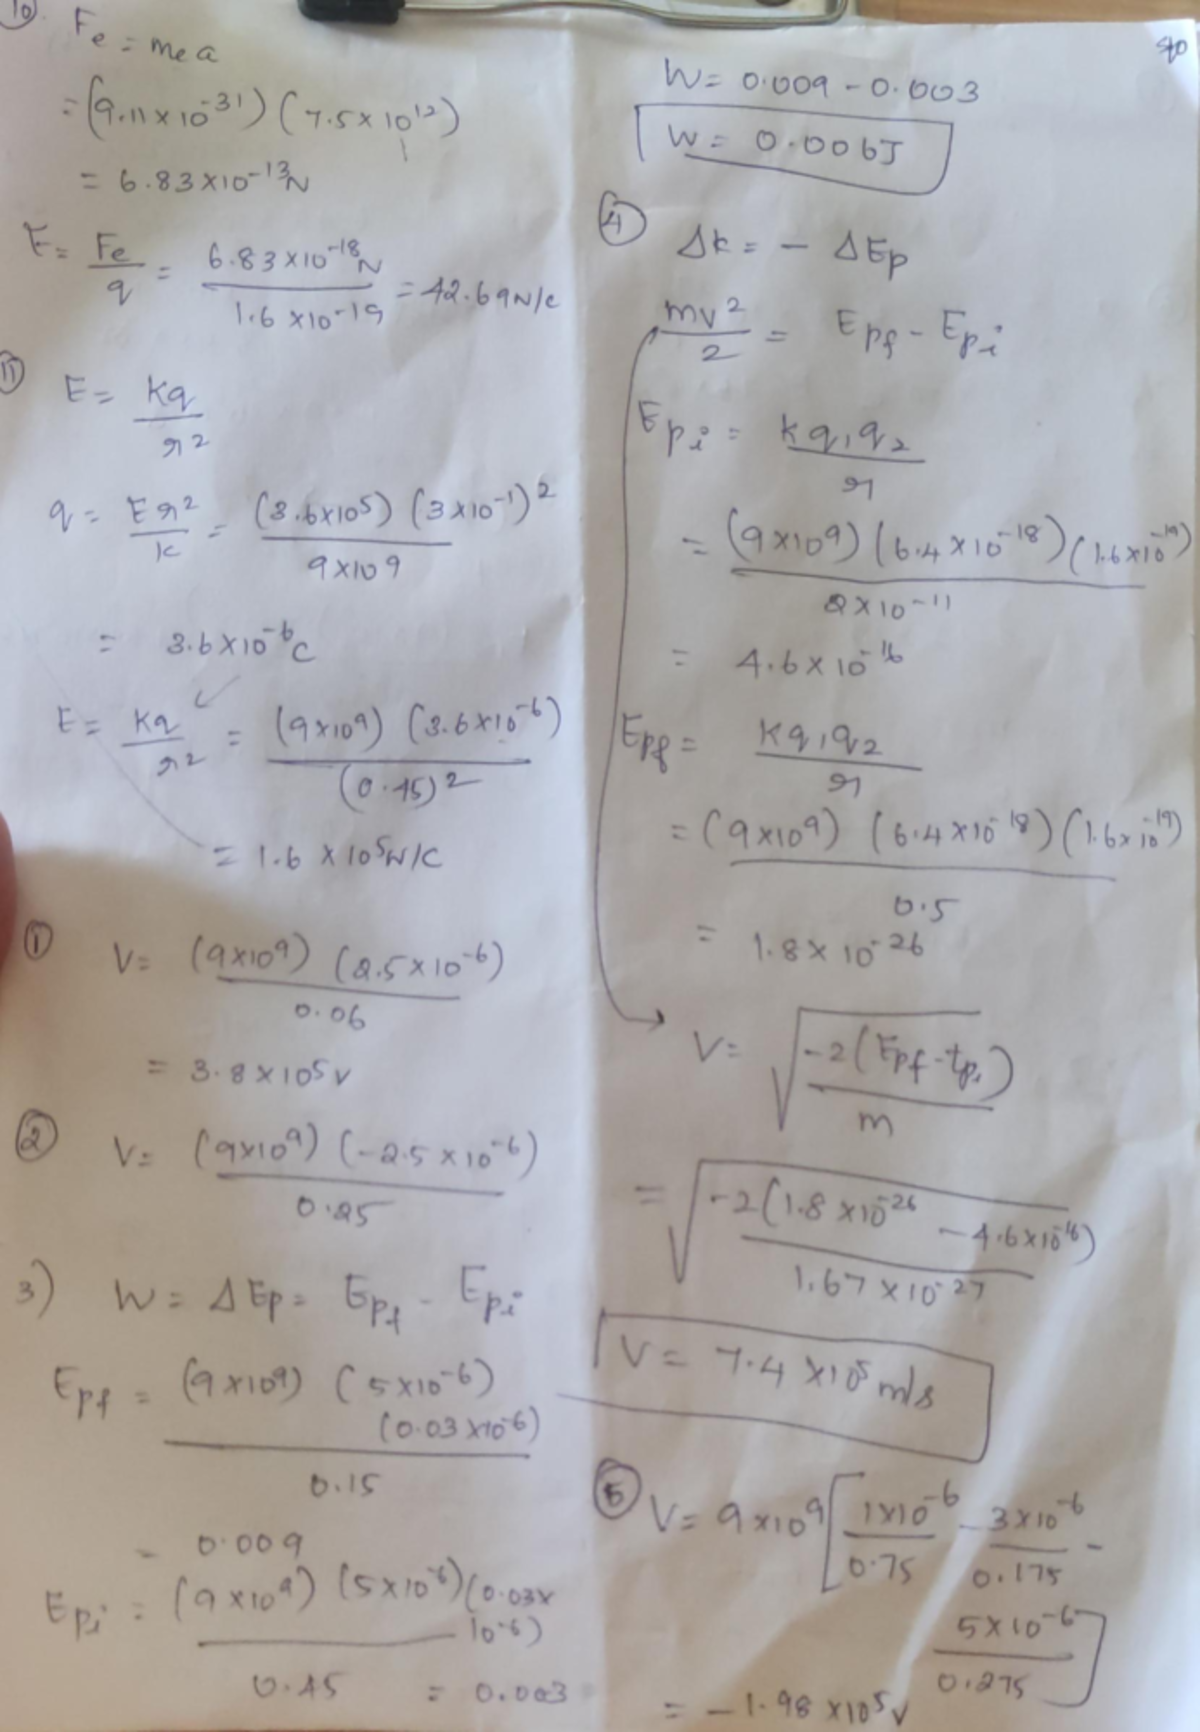 10.
Fe = me a
= (9.11 x 10^-31) (7.5 x 10^12)
= 6.83 x 10^-13 N
E = Fe/q = 6.83 x 10^-18 N / 1.6 x 10^-19 = 42.69 N/C
11
E = kq / r^2
q = Er^2/k = (3.6x10^5) (3 x 10^-1)^2 / 9 x 10^9
= 3.6 x 10^-6 C
E = kq / r^2 = (9x10^9) (3.6x10^-6) / (0.45)^2
= 1.6 x 10^5 N/C
① V = (9x10^9) (2.5 x 10^-6) / 0.06
= 3.8 x 10^5 V
② V = (9x10^9) (-2.5 x 10^-6) / 0.25
3) W = ΔEp = Epf - Epi
Epf = (9 x 10^9) (5 x 10^-6) (0.03 x 10^-6) / 0.15
= 0.009
Epi = (9 x 10^9) (5 x 10^-6) (0.03 x 10^-6) / 0.45 = 0.003
W = 0.009 - 0.003
W = 0.006 J
④ Δk = - ΔEp
mv^2 / 2 = Epf - Epi
Epi = kq1q2 / r
= (9 x 10^9) (6.4 x 10^-18) (1.6 x 10^-19) / 2 x 10^-11
= 4.6 x 10^-16
Epf = kq1q2 / r
= (9 x 10^9) (6.4 x 10^-18) (1.6 x 10^-19) / 0.5
= 1.8 x 10^-26
V = √(-2(Epf - Epi) / m)
= √(-2(1.8 x 10^-26 - 4.6 x 10^-16) / 1.67 x 10^-27)
V = 7.4 x 10^5 m/s
⑤ V = 9 x 10^9 [1x10^-6 / 0.75 - 3x10^-6 / 0.175 -
5 x 10^-6 / 0.275]
= -1.98 x 10^5 V